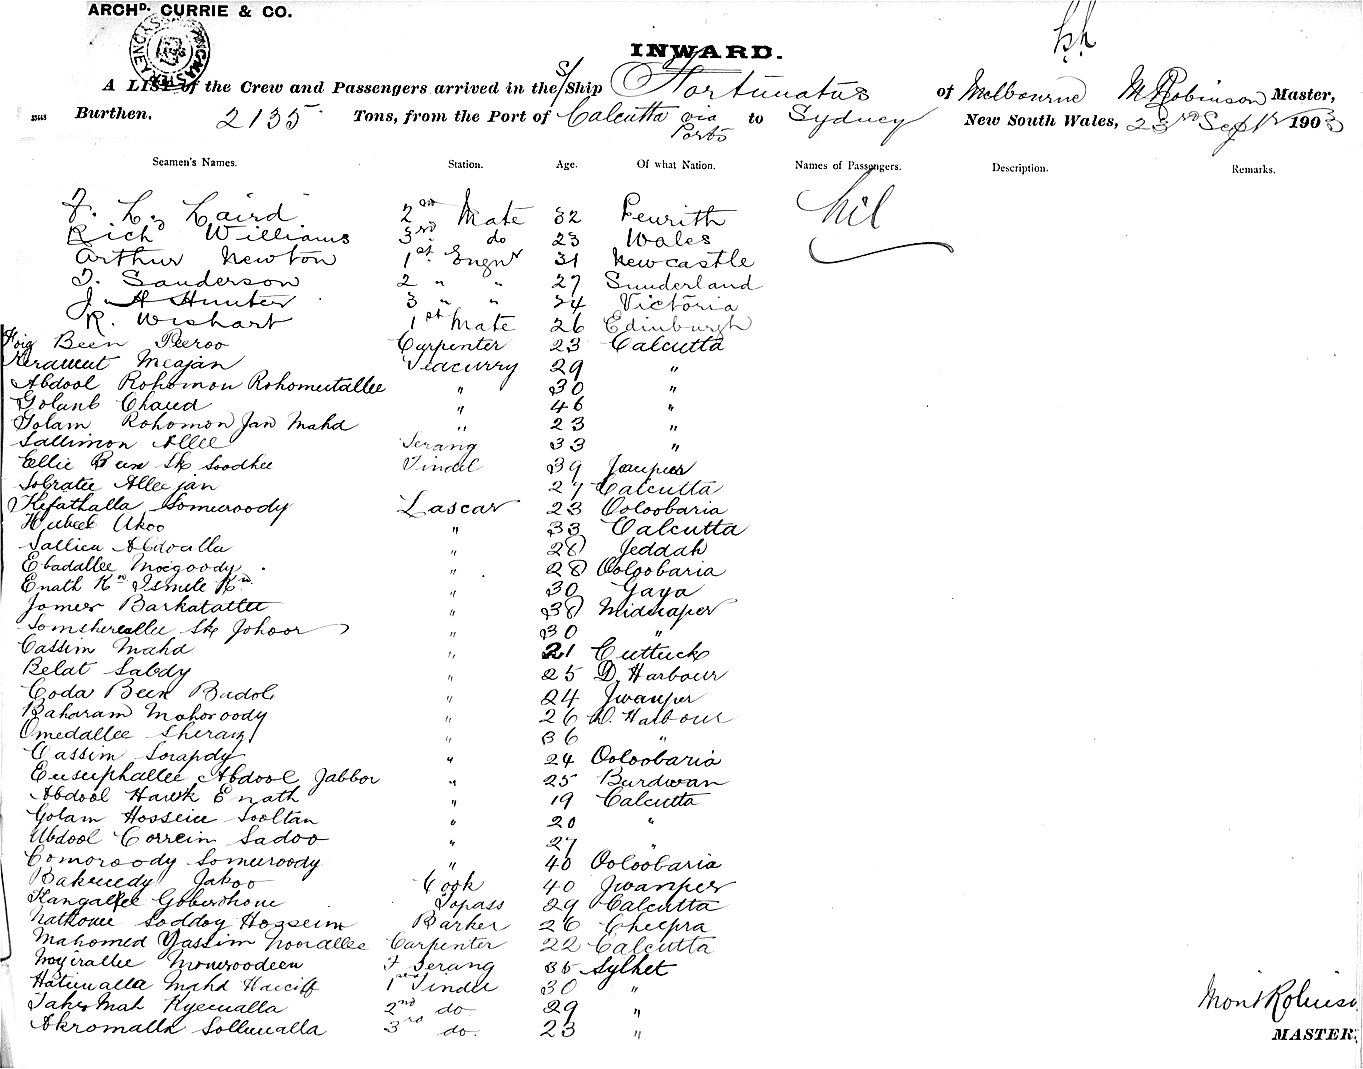 ARCHD. CURRIE & CO.
INWARD.
A LIST of the Crew and Passengers arrived in the S/Ship Fortunatus of Melbourne M Robinson Master,
Burthen, 2135 Tons, from the Port of Calcutta via Ports to Sydney New South Wales, 23rd Septr 1903
Seamen's Names. Station. Age. Of what Nation. Names of Passengers. Description. Remarks.
F. L. Laird 2nd Mate 32 Penrith Nil
Richd Williams 3rd do 23 Wales
Arthur Newton 1st Engnr 31 Newcastle
T. Sanderson 2 " " 27 Sunderland
J. A Hunter 3 " " 24 Victoria
R. Wishart 1st Mate 26 Edinburgh
Been Peeroo Carpenter 23 Calcutta
Keramut Meajan Seacurry 29 "
Abdool Rohomon Rohomutallee " 30 "
Golamb Chand " 46 "
Golam Rohomon Jan Mahd " 23 "
Sallimon Allee Serang 33 "
Ellie Bux Sk Soodhee Tindel 39 Jaunpur
Sobratee Alleejan 27 Calcutta
Kefathalla Somuroody Lascar 23 Ooloobaria
Akoo " 33 Calcutta
Sallica Abdoalla " 28 Jeddah
Ebadallee Moegoody " 28 Ooloobaria
Enath Kn Ismile Kn " 30 Gaya
Jomer Barkatallee " 38 Midnaper
Somsherallee Sk Johoor " 30 "
Cassim Mahd " 21 Cuttuck
Belat Sabdy " 25 D. Harbour
Coda Been Budol " 24 Jwanper
Baharam Mohoroody " 26 D. Harbour
Omedallee Sherazy " 36 "
Cassim Sorapdy " 24 Ooloobaria
Euseuphallee Abdool Jabbor " 25 Burdwan
Abdool Hawk Enath " 19 Calcutta
Golam Hossein Sooltan " 20 "
Abdool Correin Sadoo " 27 "
Comoroody Someroody " 40 Ooloobaria
Bakreedy Jakoo Cook 40 Jwanper
Kangallee Goberdhone Topass 29 Calcutta
Nathonee Soddoy Hossein Barker 26 Cheepra
Mahomed Yassim Noorallee Carpenter 22 Calcutta
Moyirallee Monuroodeen F Serang 35 Sylhet
Hatimalla Mahd Haniff 1st Tindel 30 "
Taker Mah Kyemalla 2nd do 29 "
Akromalla Sollimalla 3rd do. 23 "
Mont Robinso
MASTER.